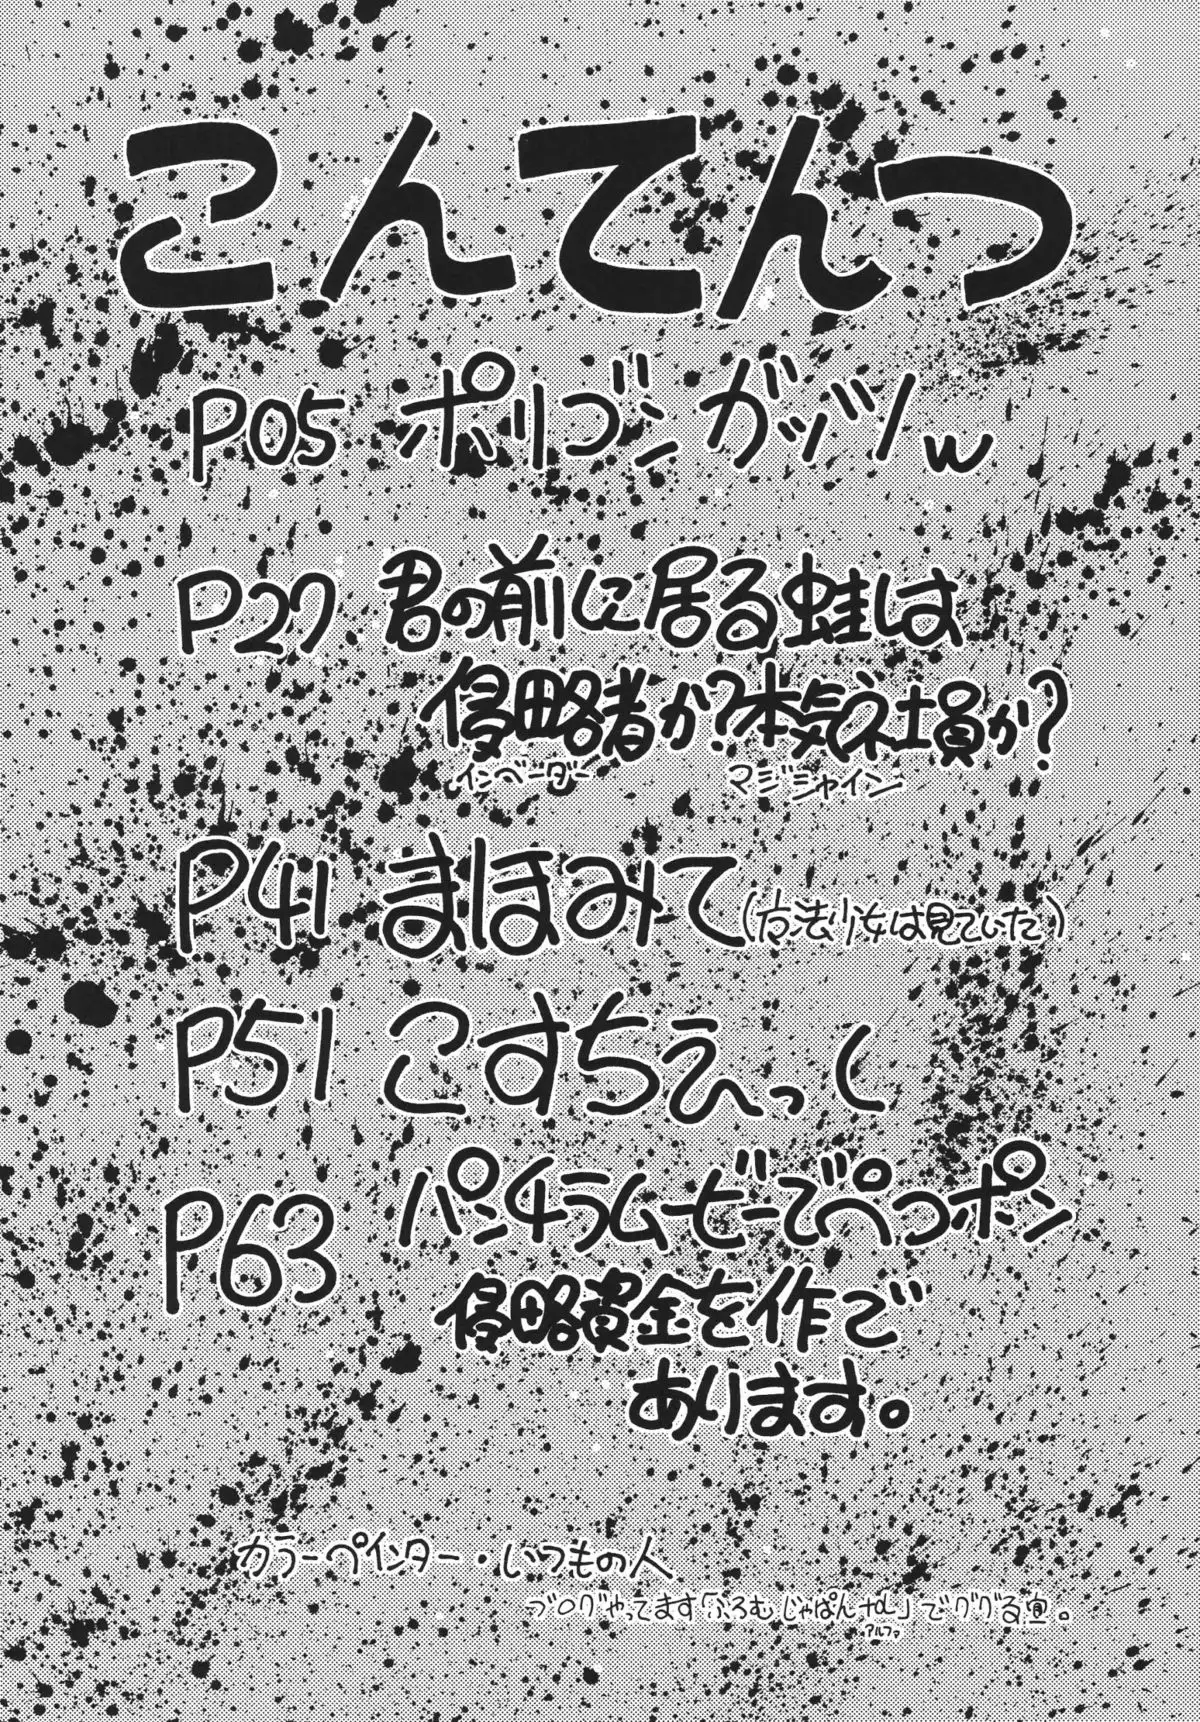 こんてんつ
P05 ポリゴンガッツw
P27 君の前に居る蛙は
侵略者か?本気社員か?
インベーダー マジシャイン
P41 まほみて(方法少女は見ていた)
P51 こすちぇっく
P63 パンチラムービーでぺっポン
侵略資金を作で
あります。
カラーペインター・いつもの人
ブログやってます「ふろむじゃぱん+α」でググる宜。
アルファ